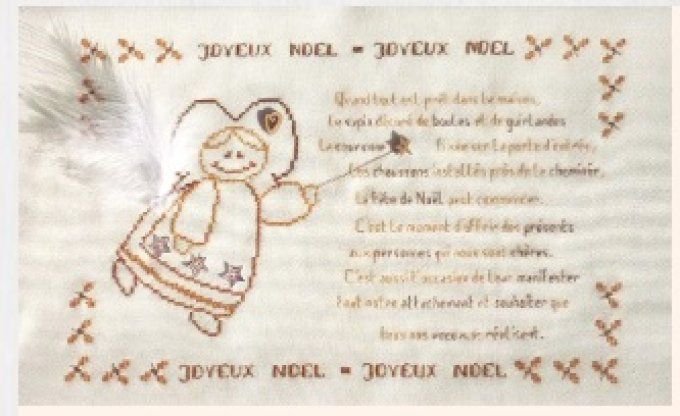 JOYEUX NOEL = JOYEUX NOEL
Quand tout est prêt dans la maison,
Le sapin décoré de boules et de guirlandes
La couronne fixée sur la porte d'entrée,
Les chaussons installés près de la cheminée,
La fête de Noël peut commencer.
C'est le moment d'offrir des présents
aux personnes qui nous sont chères.
C'est aussi l'occasion de leur manifester
tout notre attachement et souhaiter que
tous nos voeux se réalisent.
JOYEUX NOEL = JOYEUX NOEL